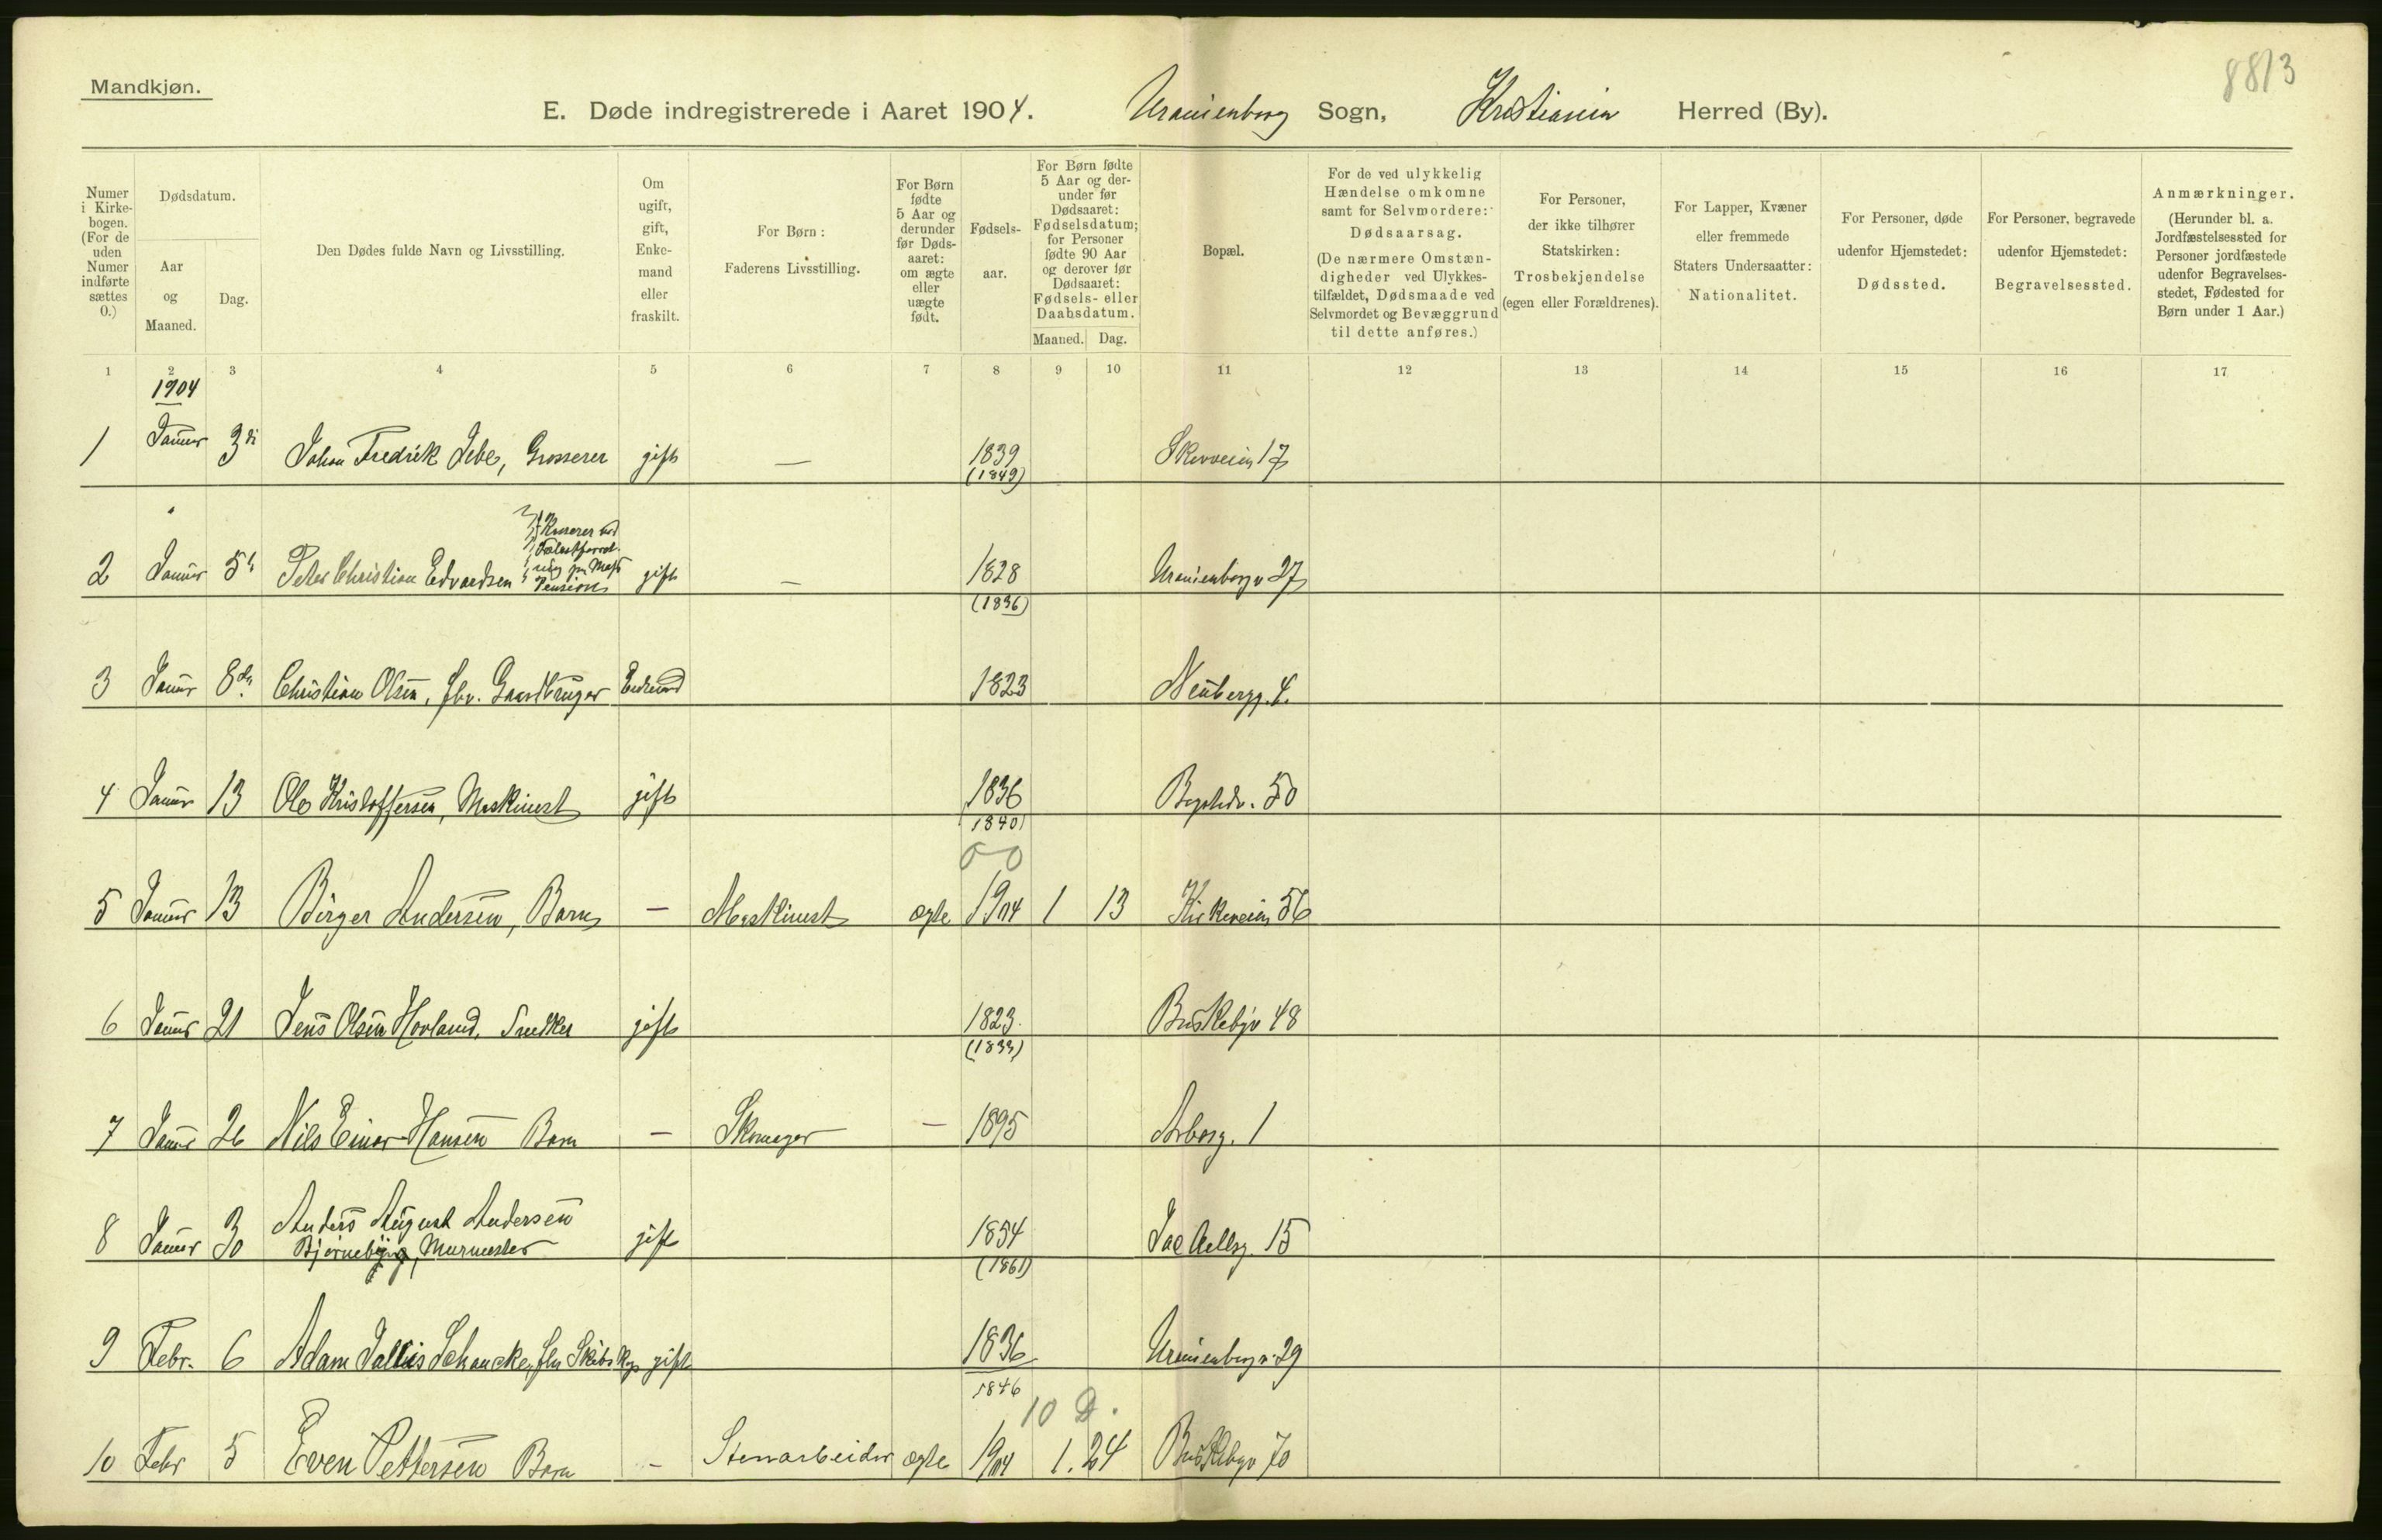 8813
Mandkjøn.
E. Døde indregistrerede i Aaret 1904. Uranienborg Sogn, Kristiania Herred (By).
Numer i Kirke-bogen. (For de uden Numer indførte sættes 0.)
Dødsdatum.
Aar og Maaned.
Dag.
Den Dødes fulde Navn og Livsstilling.
Om ugift, gift, Enke-mand eller fraskilt.
For Børn:
Faderens Livsstilling.
For Børn fødte 5 Aar og derunder før Døds-aaret: om ægte eller uægte født.
Fødsels-aar.
For Børn fødte 5 Aar og der-under før Dødsaaret: Fødselsdatum; for Personer fødte 90 Aar og derover før Dødsaaret: Fødsels- eller Daabsdatum.
Maaned. Dag.
Bopæl.
For de ved ulykkelig Hændelse omkomne samt for Selvmordere: Dødsaarsag.
(De nærmere Omstæn-digheder ved Ulykkes-tilfældet, Dødsmaade ved Selvmordet og Bevæggrund til dette anføres.)
For Personer, der ikke tilhører Statskirken: Trosbekjendelse (egen eller Forældrenes).
For Lapper, Kvæner eller fremmede Staters Undersaatter: Nationalitet.
For Personer, døde udenfor Hjemstedet: Dødssted.
For Personer, begravede udenfor Hjemstedet: Begravelsessted.
Anmærkninger.
(Herunder bl. a. Jordfæstelsessted for Personer jordfæstede udenfor Begravelses-stedet, Fødested for Børn under 1 Aar.)
1 2 3 4 5 6 7 8 9 10 11 12 13 14 15 16 17
1904
1 Januar 3di Johan Fredrik Jebe, Grosserer gift — 1839 17
(1849)
2 Januar 5 Peter Christian Edvardsen Pension gift — 1828 Uranienborgv 27
(1836)
3 Januar 8de Christian Olsen, fhv. Gaardbruger Enkemd 1823 Neubergg. 4.
4 Januar 13 Ole Kristoffersen, Maskinist gift 1836 Bogstdv. 50
(1840)
0 0
5 Januar 13 Birger Andersen, Barn — Maskinist ægte 1904 1 13 Kirkeveien 56
6 Januar 21 Jens Olsen Hovland, Snedker gift 1823 Briskebyv 48
(1833)
7 Januar 26 Nils Einar Hansen Barn — Skomager — 1895 Arbog. 1
8 Januar 30 Anders August Andersen
Bjørneby, Murmester gift 1854 Jac Aallsg. 15
(1861)
9 Febr. 6 Adam Schancke, fhv Skibskp gift 1836 Uranienborgv. 29
1846
10 D.
10 Febr 5 Even Pettersen Barn - Stenarbeider ægte 1904 1. 24 Briskebyv 70